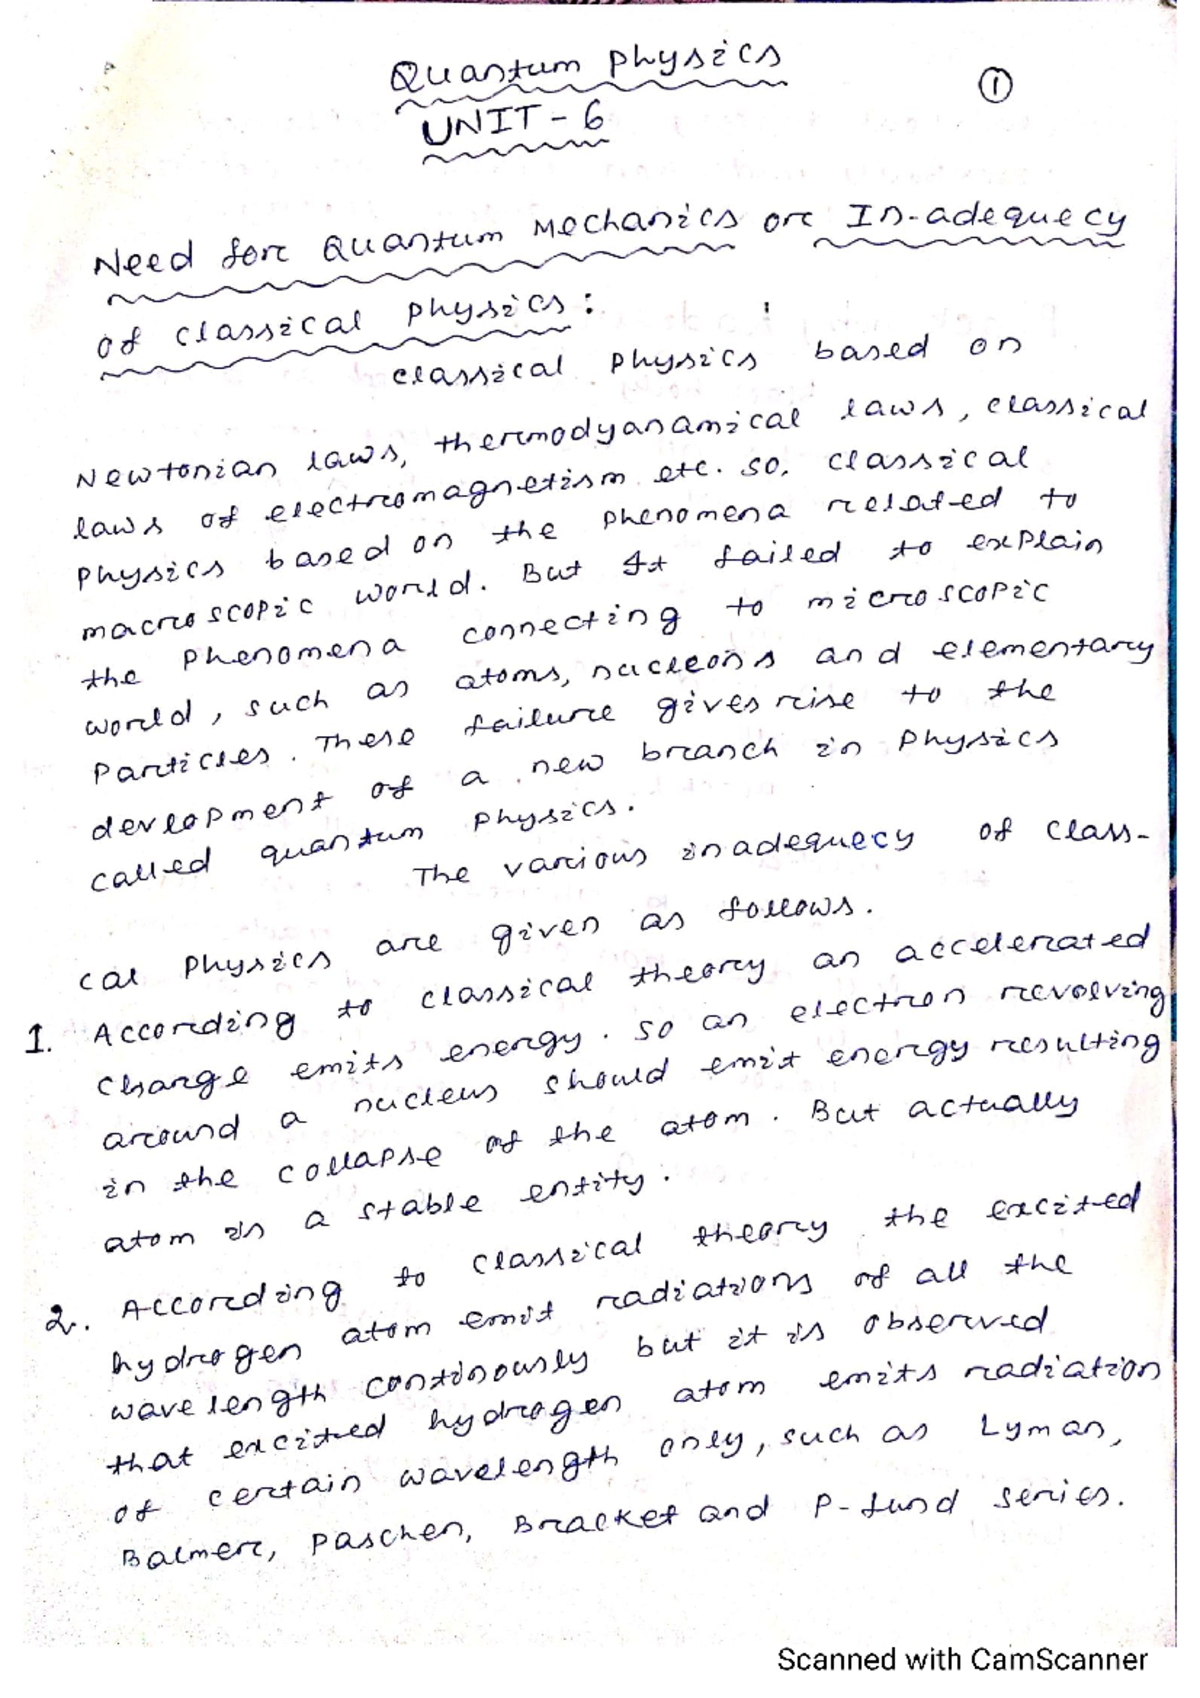 Quantum Physics
①
UNIT - 6
Need for Quantum Mechanics or In-adequecy
of classical physics :
classical physics based on
Newtonian laws, thermodyanamical laws, classical
laws of electromagnetism etc. so, classical
physics based on the phenomena related to
macroscopic world. But It failed to explain
the phenomena connecting to microscopic
world, such as atoms, nucleons and elementary
particles. These failure gives rise to the
development of a new branch in physics
called quantum physics.
The various inadequecy of class-
cal physics are given as follows.
1. According to classical theory an accelerated
charge emits energy. so an electron revolving
around a nucleus should emit energy resulting
in the collapse of the atom. But actually
atom is a stable entity.
2. According to classical theory the excited
hydrogen atom emit radiations of all the
wavelength continously but it is observed
that excited hydrogen atom emits radiation
of certain wavelength only, such as Lyman,
Balmer, paschen, Bracket and P-fund series.
Scanned with CamScanner